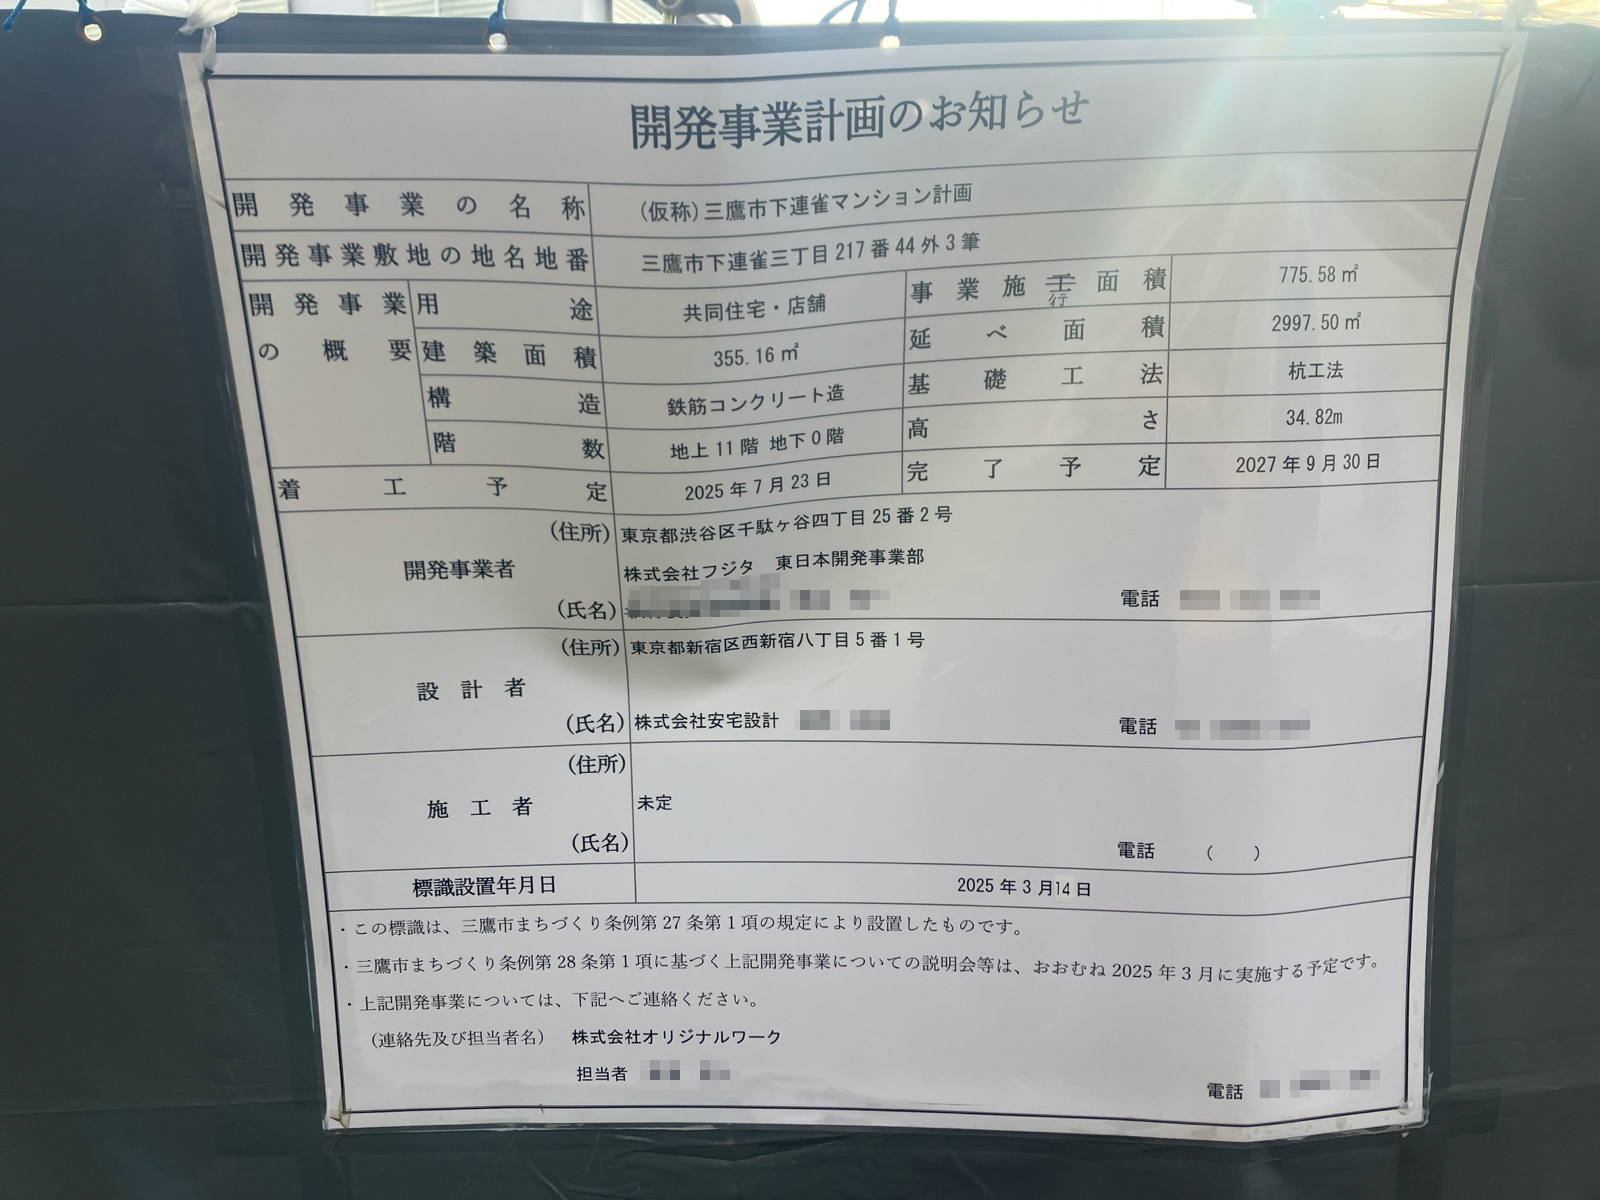 開発事業計画のお知らせ
開発事業の名称 (仮称)三鷹市下連雀マンション計画
開発事業敷地の地名地番 三鷹市下連雀三丁目217番44外3筆
開発事業の概要 用途 共同住宅・店舗 事業施工行面積 775.58㎡
建築面積 355.16㎡ 延べ面積 2997.50㎡
構造 鉄筋コンクリート造 基礎工法 杭工法
階数 地上11階 地下0階 高さ 34.82m
着工予定 2025年7月23日 完了予定 2027年9月30日
開発事業者 (住所) 東京都渋谷区千駄ヶ谷四丁目25番2号
株式会社フジタ 東日本開発事業部
(氏名) 電話
設計者 (住所) 東京都新宿区西新宿八丁目5番1号
(氏名) 株式会社安宅設計 電話
施工者 (住所)
未定
(氏名) 電話 ( )
標識設置年月日 2025年3月14日
・この標識は、三鷹市まちづくり条例第27条第1項の規定により設置したものです。
・三鷹市まちづくり条例第28条第1項に基づく上記開発事業についての説明会等は、おおむね2025年3月に実施する予定です。
・上記開発事業については、下記へご連絡ください。
(連絡先及び担当者名) 株式会社オリジナルワーク
担当者 電話